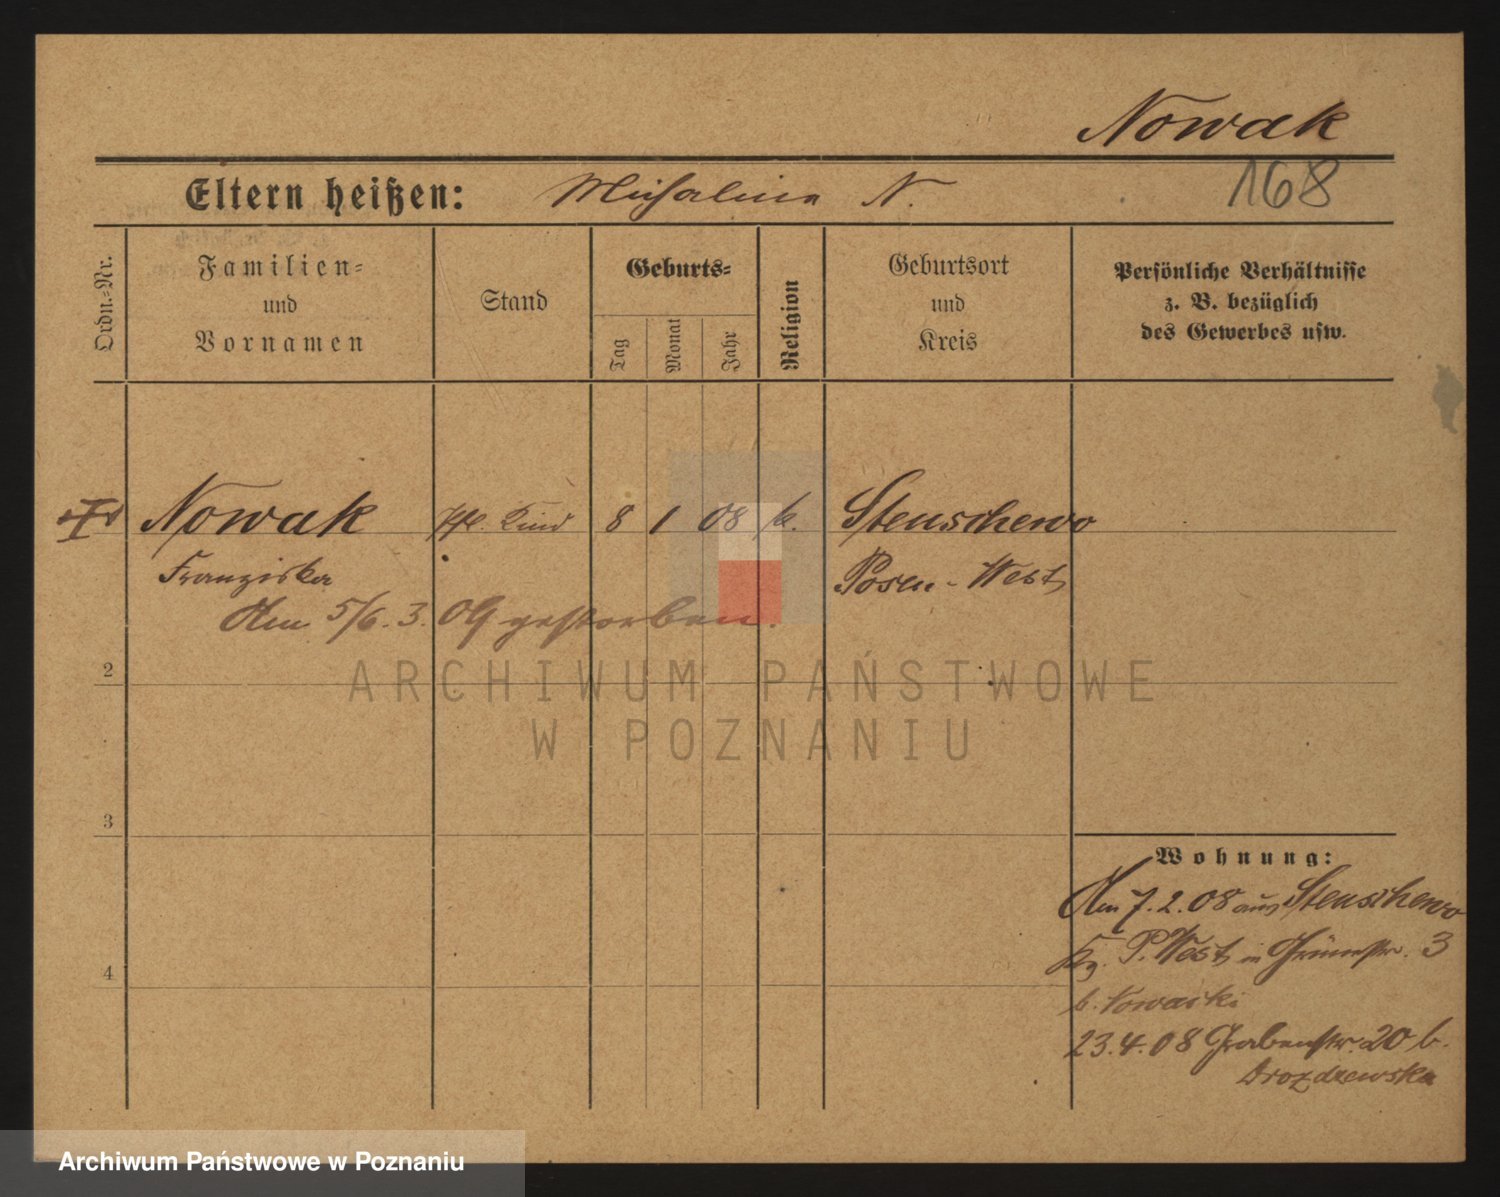 Nowak
168
Eltern heißen: Michalina N.
Ordn.-Nr.
Familien-
und
Vornamen
Stand
Geburts-
Tag
Monat
Jahr
Religion
Geburtsort
und
Kreis
Persönliche Verhältnisse
z. B. bezüglich
des Gewerbes usw.
Nowak Pfl. Kind 8 1 08 k. Stenschewo
Franziska Posen-West
Am 5/6. 3. 09 gestorben.
2
ARCHIWUM PAŃSTWOWE
W POZNANIU
3
Wohnung:
Am 7. 2. 08 aus Stenschewo
P. West in Grünestr. 3
4
b. Nowacki
23. 4. 08 Grabenstr. 20 b.
Drozdzewska
Archiwum Państwowe w Poznaniu